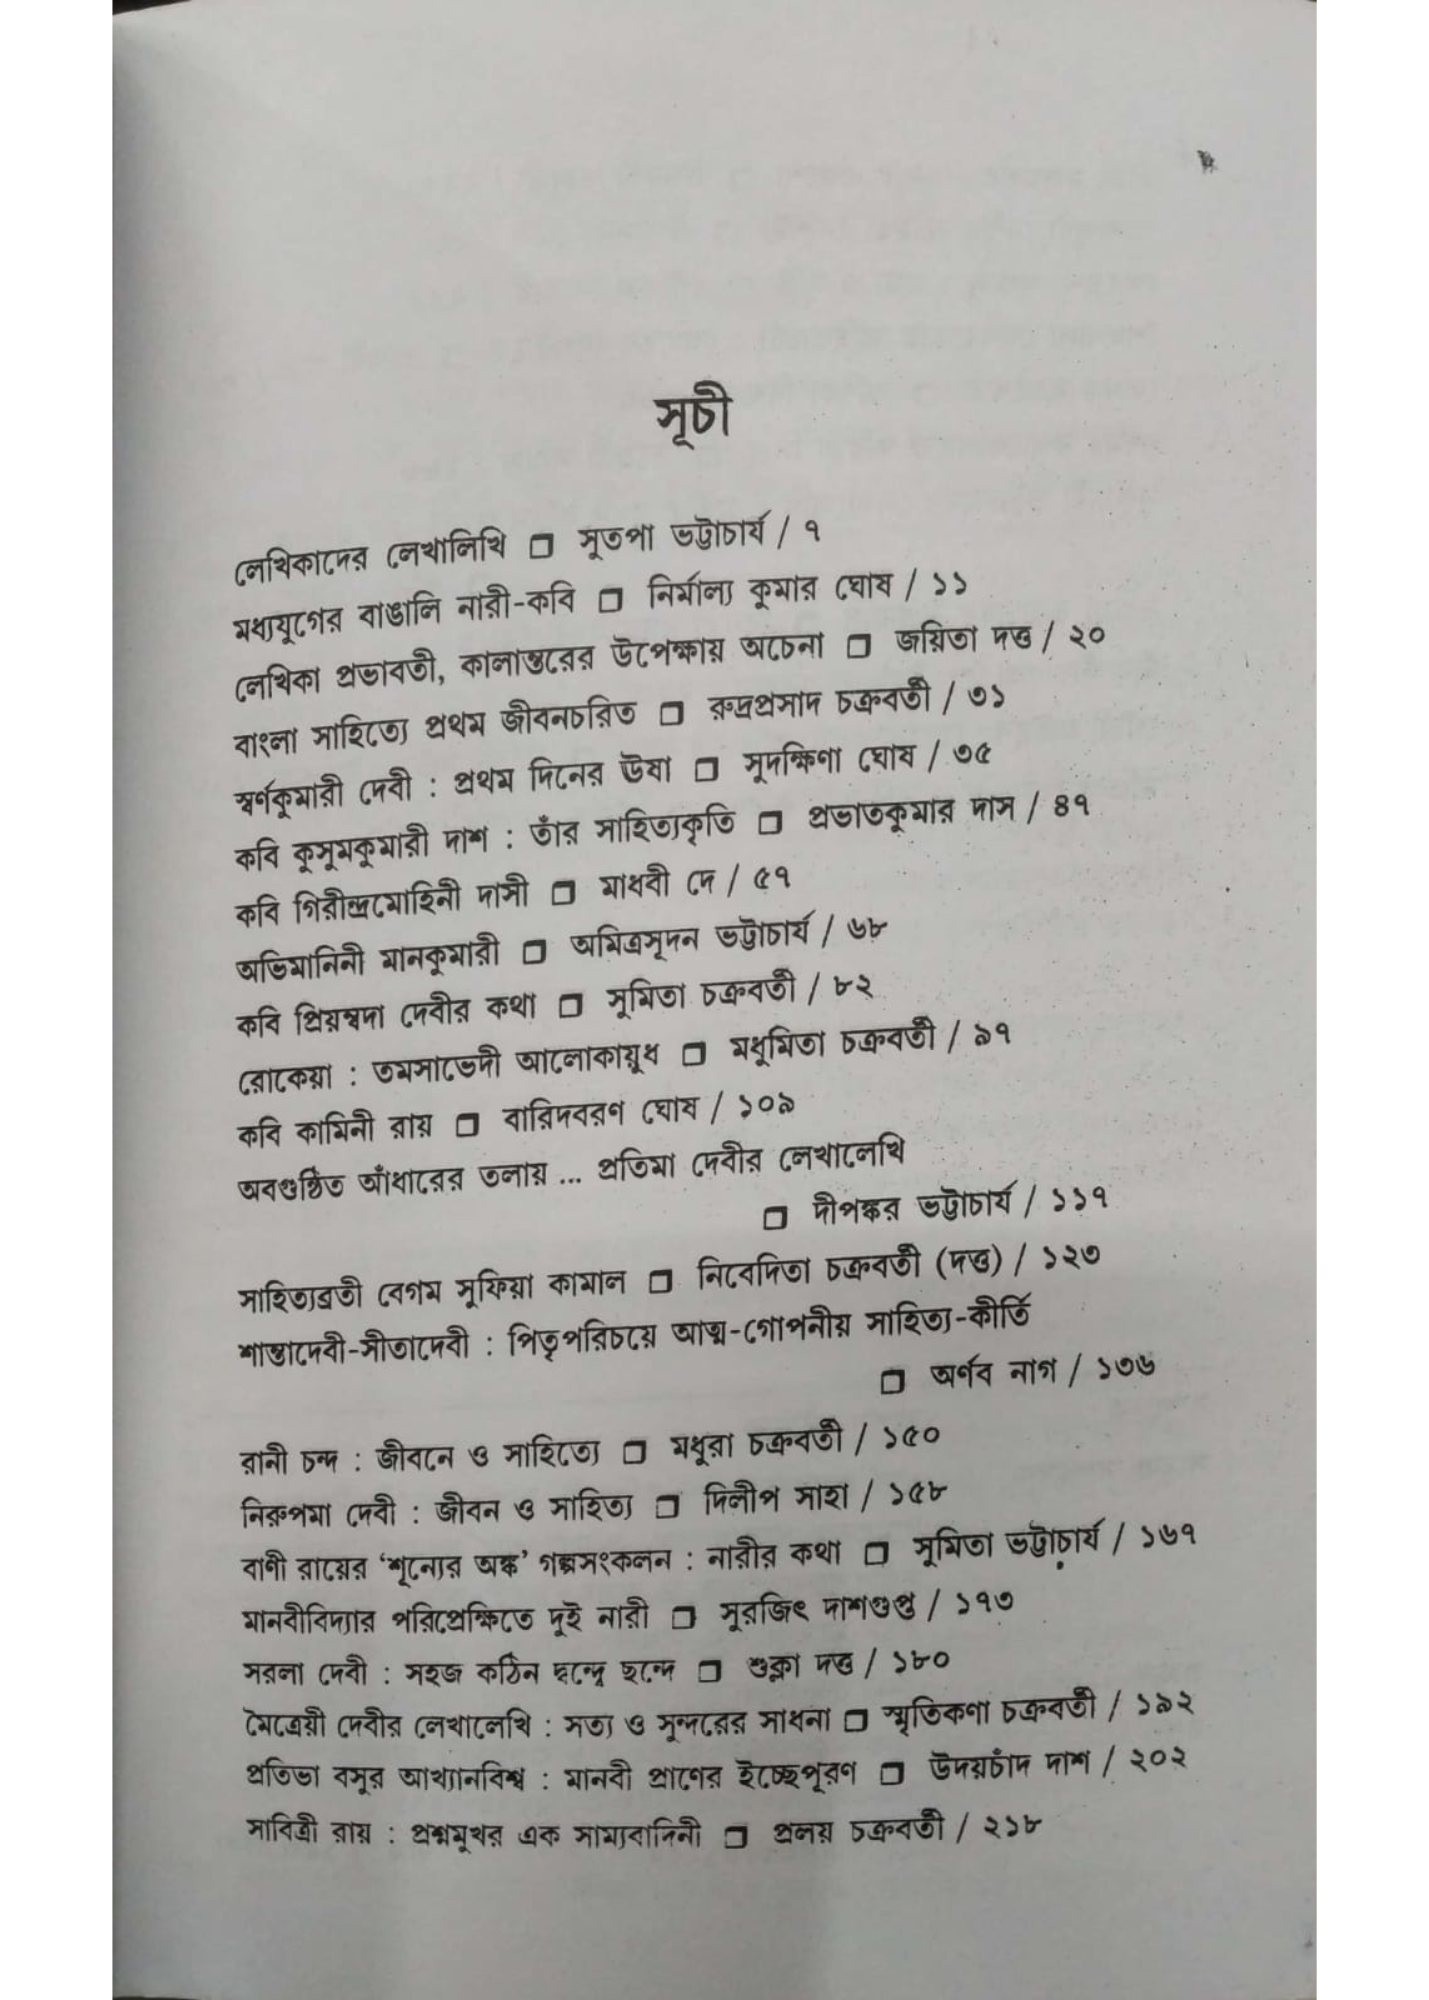 সূচী
লেখিকাদের লেখালিখি □ সুতপা ভট্টাচার্য / ৭
মধ্যযুগের বাঙালি নারী-কবি □ নির্মাল্য কুমার ঘোষ / ১১
লেখিকা প্রভাবতী, কালান্তরের উপেক্ষায় অচেনা □ জয়িতা দত্ত / ২০
বাংলা সাহিত্যে প্রথম জীবনচরিত □ রুদ্রপ্রসাদ চক্রবর্তী / ৩১
স্বর্ণকুমারী দেবী : প্রথম দিনের ঊষা □ সুদক্ষিণা ঘোষ / ৩৫
কবি কুসুমকুমারী দাশ : তাঁর সাহিত্যকৃতি □ প্রভাতকুমার দাস / ৪৭
কবি গিরীন্দ্রমোহিনী দাসী □ মাধবী দে / ৫৭
অভিমানিনী মানকুমারী □ অমিত্রসূদন ভট্টাচার্য / ৬৮
কবি প্রিয়ম্বদা দেবীর কথা □ সুমিতা চক্রবর্তী / ৮২
রোকেয়া : তমসাভেদী আলোকায়ুধ □ মধুমিতা চক্রবর্তী / ৯৭
কবি কামিনী রায় □ বারিদবরণ ঘোষ / ১০৯
অবগুণ্ঠিত আঁধারের তলায় ... প্রতিমা দেবীর লেখালেখি
□ দীপঙ্কর ভট্টাচার্য / ১১৭
সাহিত্যব্রতী বেগম সুফিয়া কামাল □ নিবেদিতা চক্রবর্তী (দত্ত) / ১২৩
শান্তাদেবী-সীতাদেবী : পিতৃপরিচয়ে আত্ম-গোপনীয় সাহিত্য-কীর্তি
□ অর্ণব নাগ / ১৩৬
রানী চন্দ : জীবনে ও সাহিত্যে □ মধুরা চক্রবর্তী / ১৫০
নিরুপমা দেবী : জীবন ও সাহিত্য □ দিলীপ সাহা / ১৫৮
বাণী রায়ের ‘শূন্যের অঙ্ক’ গল্পসংকলন : নারীর কথা □ সুমিতা ভট্টাচার্য / ১৬৭
মানবীবিদ্যার পরিপ্রেক্ষিতে দুই নারী □ সুরজিৎ দাশগুপ্ত / ১৭৩
সরলা দেবী : সহজ কঠিন দ্বন্দ্বে ছন্দে □ শুক্লা দত্ত / ১৮০
মৈত্রেয়ী দেবীর লেখালেখি : সত্য ও সুন্দরের সাধনা □ স্মৃতিকণা চক্রবর্তী / ১৯২
প্রতিভা বসুর আখ্যানবিশ্ব : মানবী প্রাণের ইচ্ছেপূরণ □ উদয়চাঁদ দাশ / ২০২
সাবিত্রী রায় : প্রশ্নমুখর এক সাম্যবাদিনী □ প্রলয় চক্রবর্তী / ২১৮